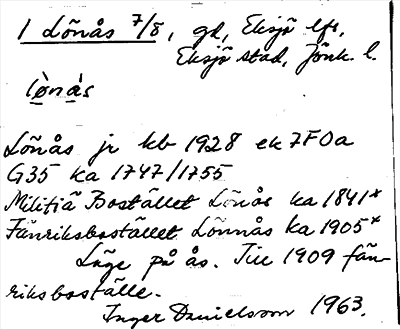 1 Lönås 7/8, gd, Eksjö lfs,
Eksjö stad, Jönk. l.
lø̀nàs
Lönås jr kb 1928 ek 7F0a
G35 ka 1747/1755
Militiä Bostället Lönås ka 1841*
Fänriksbostället Lönnås ka 1905*
Läge på ås. Till 1909 fän-
riksboställe.
Inger Danielsson 1963.